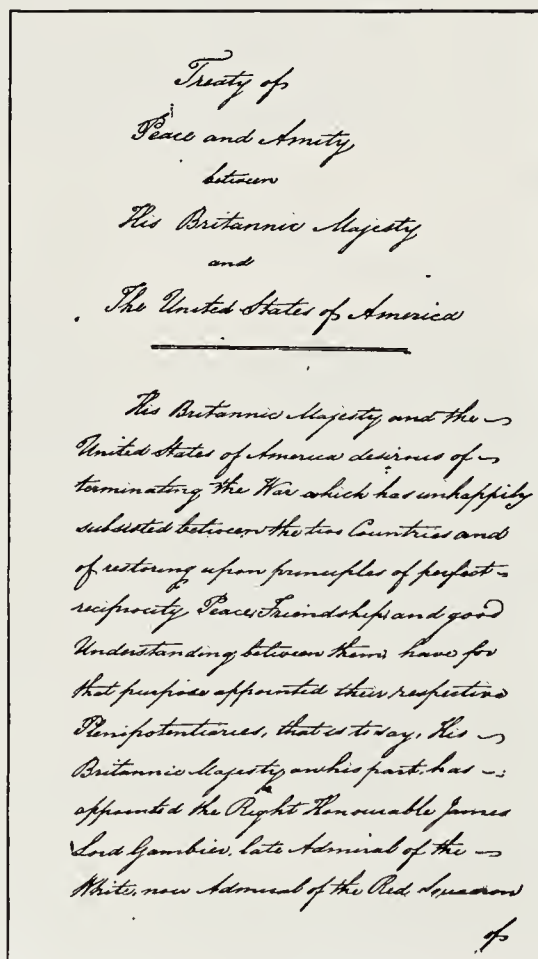 Treaty of
Peace and Amity
between
His Britannic Majesty
and
The United States of America
His Britannic Majesty and the
United States of America desirous of
terminating the War which has unhappily
subsisted between the two Countries and
of restoring upon principles of perfect
reciprocity Peace, Friendship, and good
Understanding between them, have for
that purpose appointed their respective
Plenipotentiaries, that is to say, His
Britannic Majesty on his part, has
appointed the Right Honourable James
Lord Gambier, late Admiral of the
White, now Admiral of the Red Squadron
of